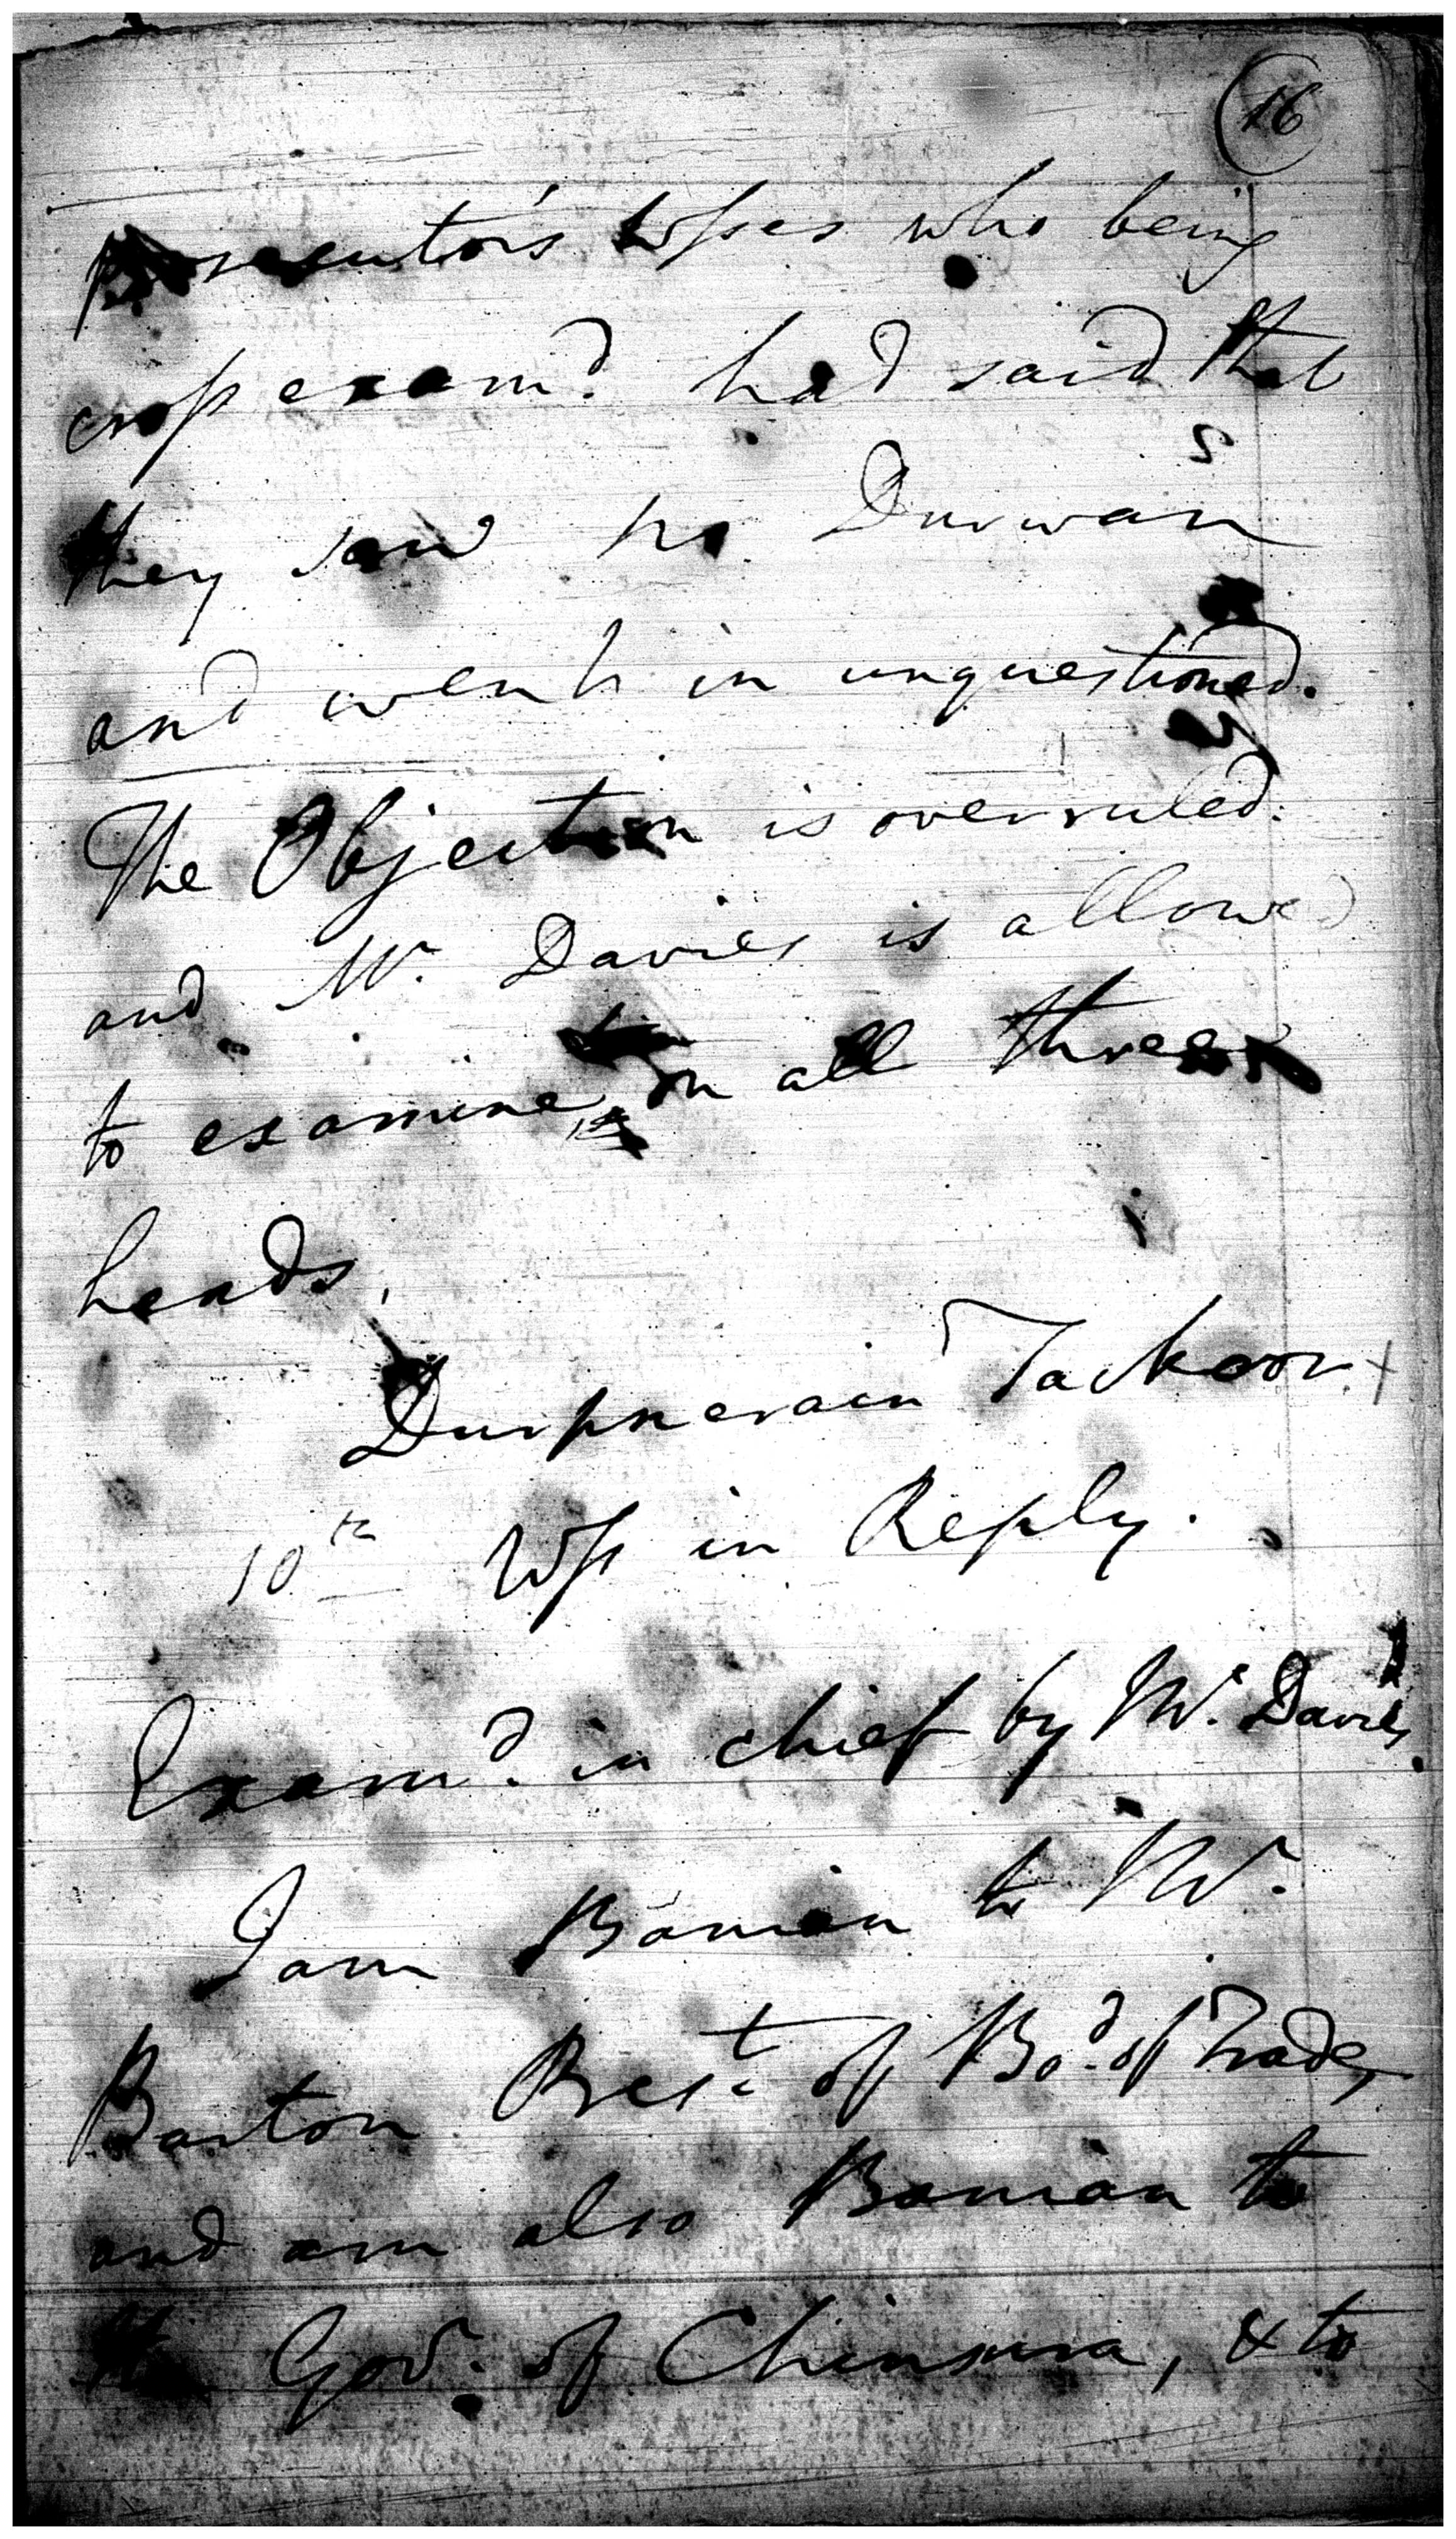 16
prosecutor's Wsses who being
cross exam.d had said that
they saw no Durwan s
and went in unquestioned.
The Objection is overruled.
and Mr. Davies is allowed
to examine on all three
heads.
Durpnerain Tackoor +
10th Wss in Reply.
Exam.d in chief by Mr. Davies.
I am Banian to Mr.
Barton Prest. of Bo.d of Trade,
and am also Banian to
the Govr. of Chinsura, & to